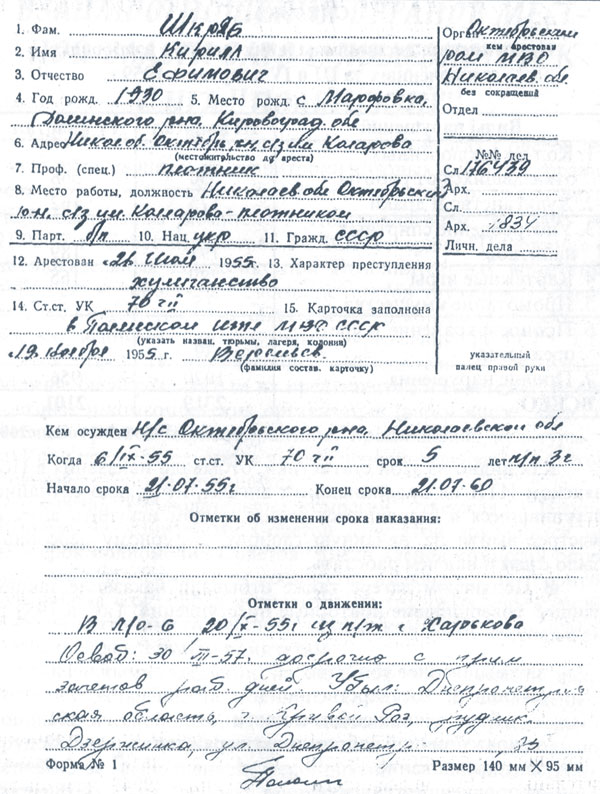 1. Фам. Шкряб
2. Имя Кирилл
3. Отчество Ефимович
4. Год рожд. 1930 5. Место рожд. с Марфовка,
Долинского р-на, Кировоград. обл
6. Адрес Никол об. Октябрь рн с/з им Комарова
(местожительство до ареста)
7. Проф. (спец.) плотник
8. Место работы, должность Николаев обл Октябрьский
р-н. с/з им. Комарова - плотником
9. Парт. б/п 10. Нац. укр 11. Гражд. СССР
12. Арестован «21» июля 1955 г. 13. Характер преступления
хулиганство
14. Ст.ст. УК 70 ч II 15. Карточка заполнена
в СССР
(указать назван. тюрьмы, лагеря, колонии)
«19» ноября 1955 г.
(фамилия состав. карточку)
Орган Октябрьским
кем арестован
МВД
Николаев. обл.
без сокращений
Отдел
№№ дел
Сл. 176439
Арх.
Сл.
Арх. 1834
Личн. дела
указательный
палец правой руки
Кем осужден Н/С Октябрьского р-на, Николаевской обл
Когда 6/IX-55 ст.ст. УК 70 ч II срок 5 лет п/п 3 г
Начало срока 21.07.55 г Конец срока 21.07.60
Отметки об изменении срока наказания:
Отметки о движении:
В Л/О-6 20/X-55 г из г Харькова
Освоб: 30/III-57. досрочно с прим
зачетов раб. дней. Убыл: Днепропетров
ская область, г. Кривой Рог, рудник.
Дзержинка, ул. Днепропетр 23
Форма № 1 Размер 140 мм × 95 мм